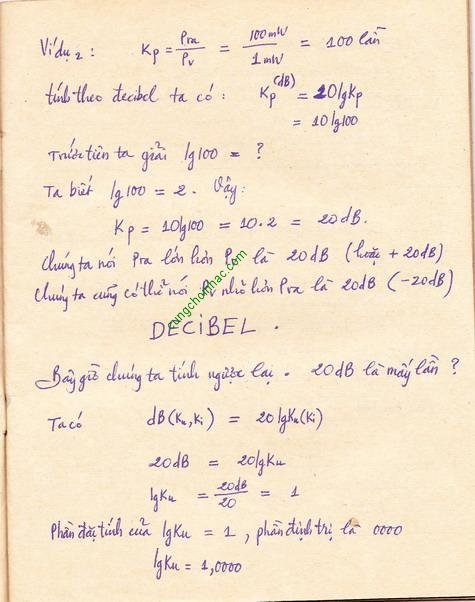 Ví dụ 2 : Kp = Pra/Pv = 100mW/1mW = 100 lần
tính theo decibel ta có : Kp(dB) = 10lgKp
= 10lg100
Trước tiên ta giải lg100 = ?
Ta biết lg100 = 2. Vậy:
Kp = 10lg100 = 10.2 = 20dB.
Chúng ta nói Pra lớn hơn Pv là 20dB (hoặc + 20dB)
Chúng ta cũng có thể nói Pv nhỏ hơn Pra là 20dB (-20dB)
cungchoinhac.com
DECIBEL.
Bây giờ chúng ta tính ngược lại. 20dB là mấy lần ?
Ta có dB(Ku,Ki) = 20lgKu(Ki)
20dB = 20lgKu
lgKu = 20dB/20 = 1
Phần đặc tính của lgKu = 1, phần định trị là 0000
lgKu = 1,0000